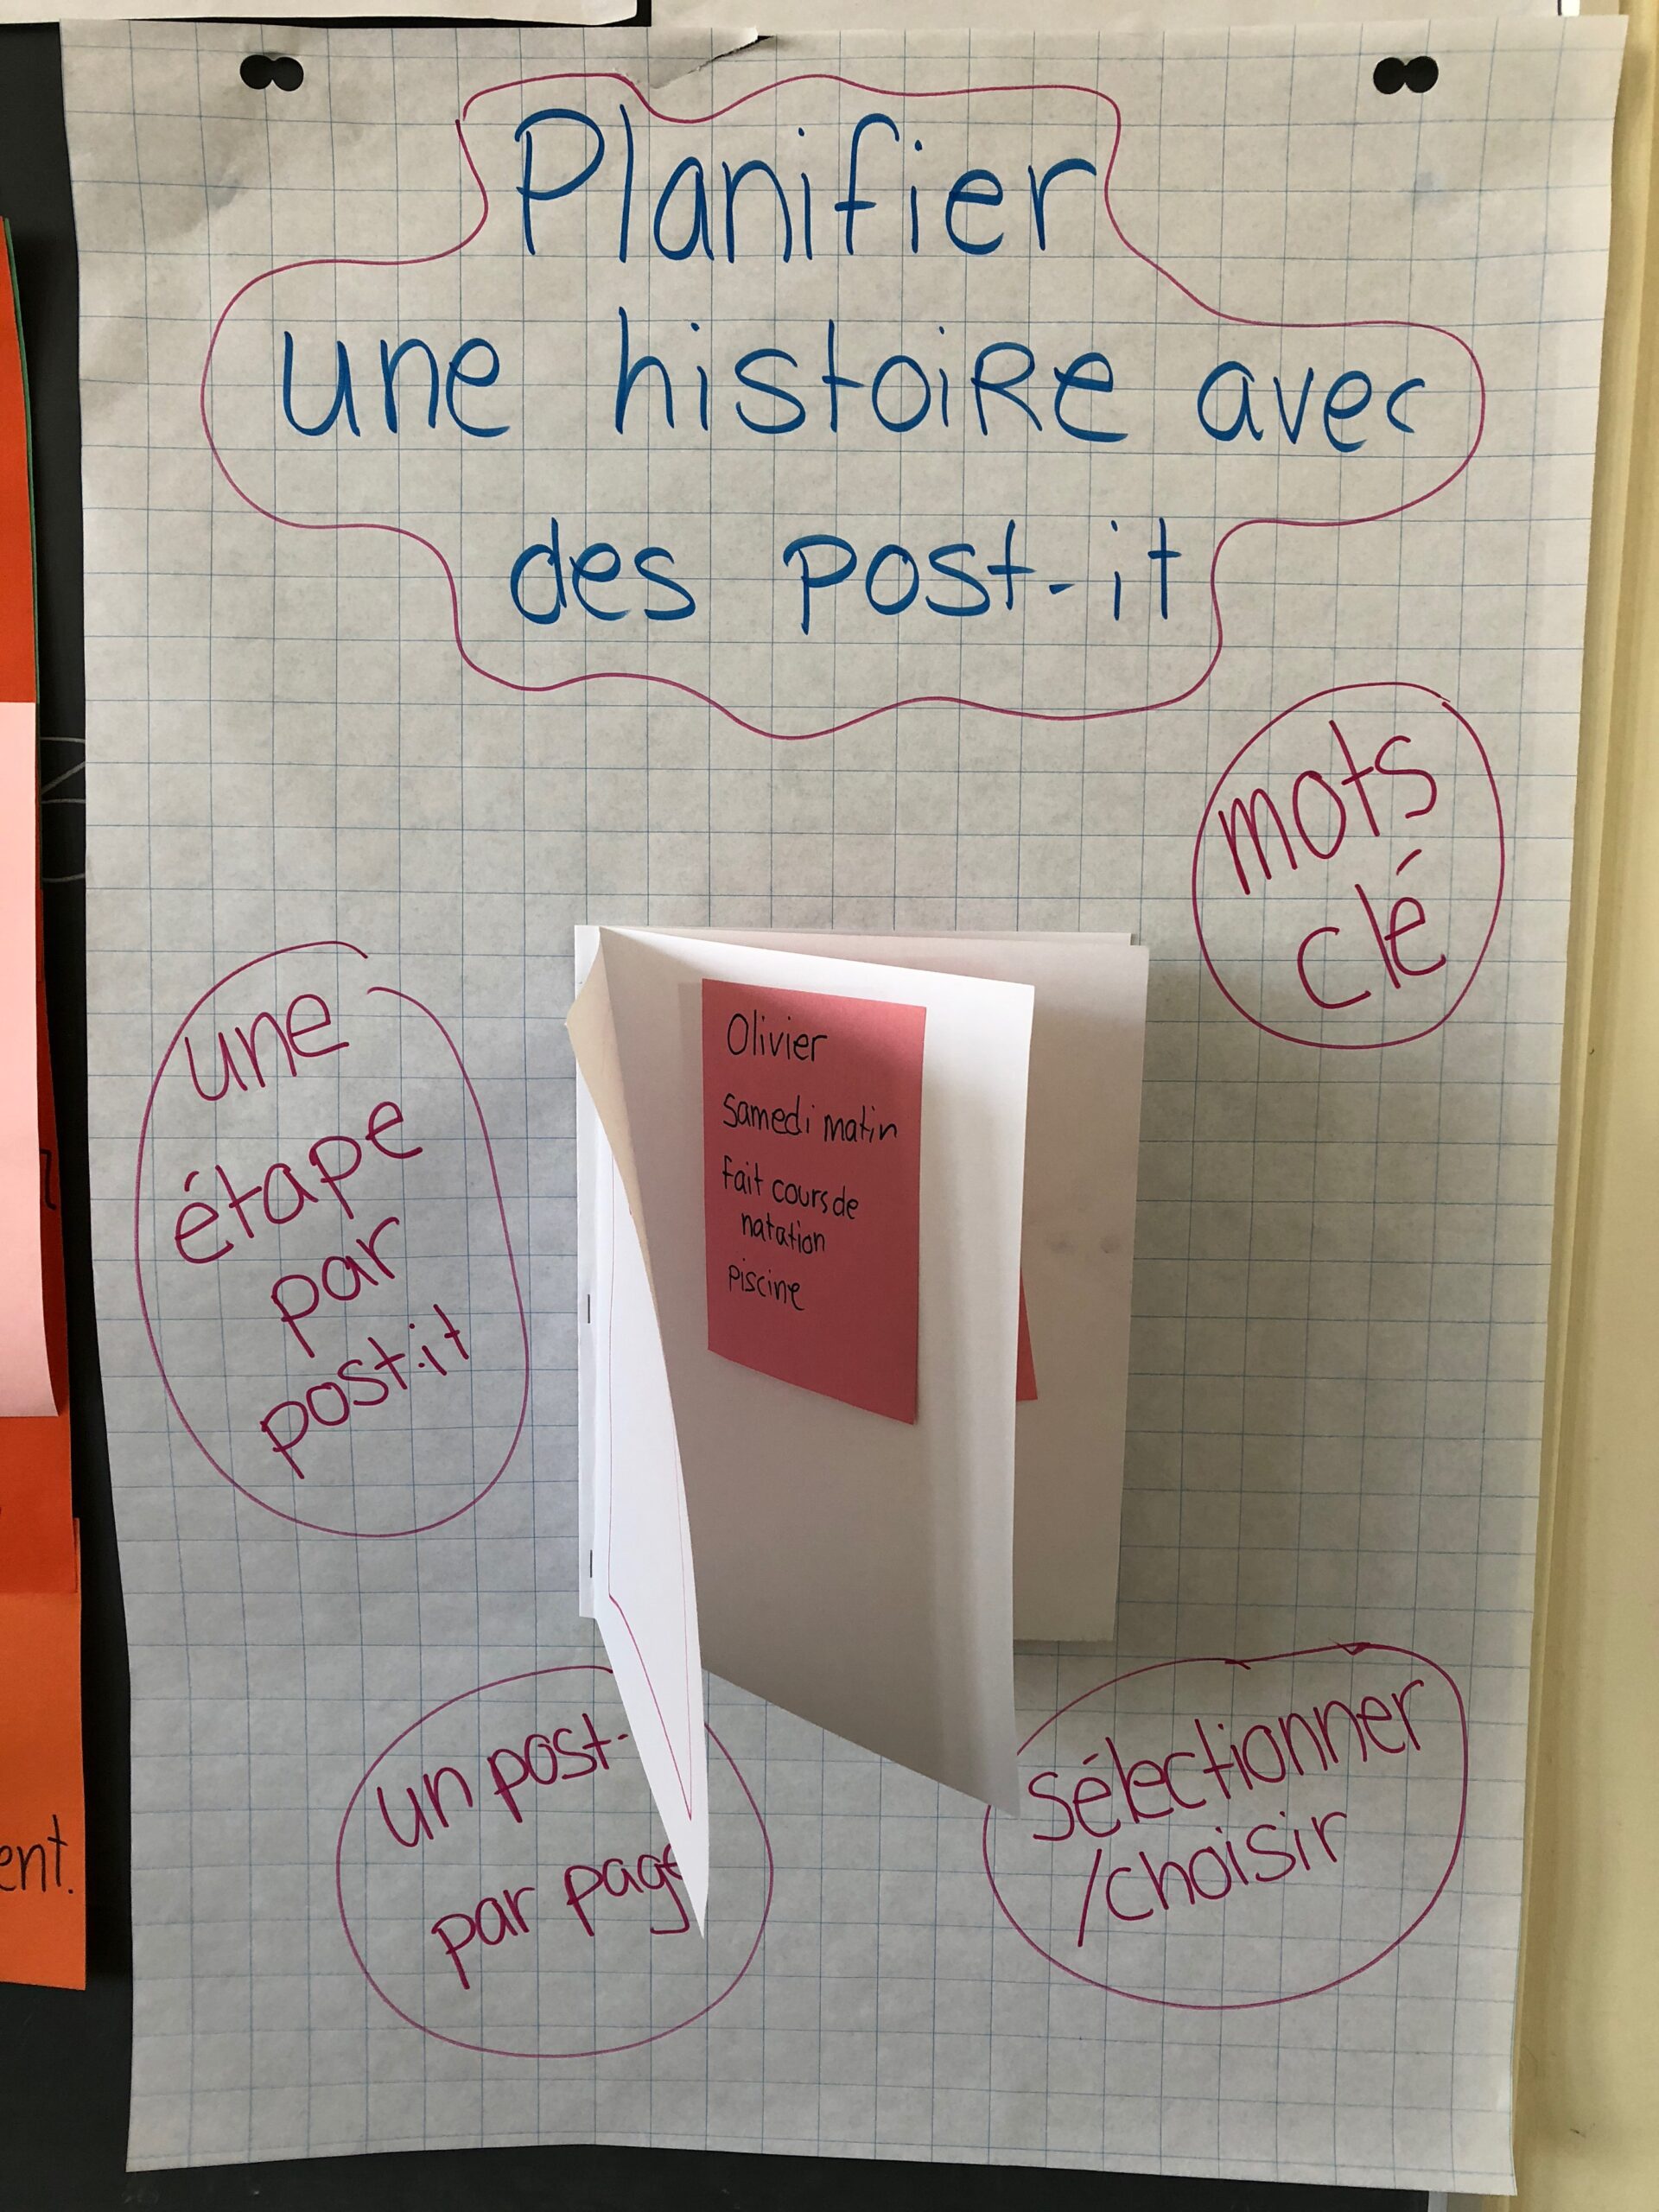 Planifier
une histoire avec
des post-it
mots
clé
une
étape
par
post-it
Olivier
samedi matin
fait cours de
natation
piscine
un post-
par page
sélectionner
/choisir
ent.